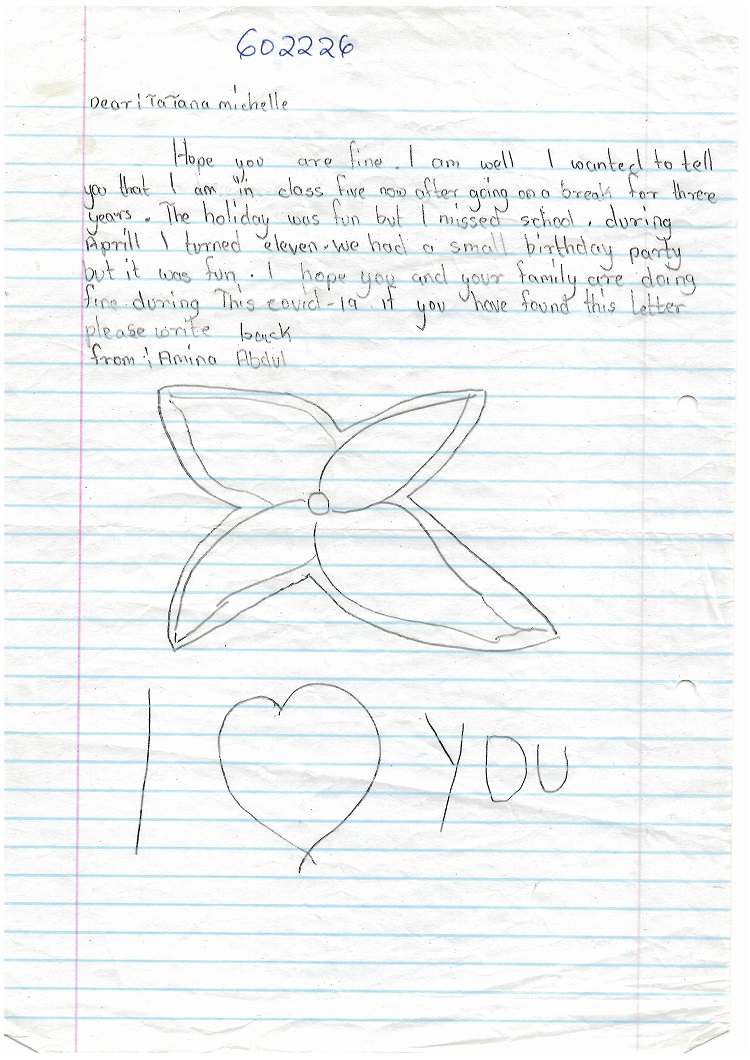 602226
Dear: Tatana michelle
Hope you are fine. I am well I wanted to tell
you that I am in class five now after going on a break for three
years. The holiday was fun but I missed school. during
Aprill I turned eleven. we had a small birthday party
but it was fun. I hope you and your family are doing
fine during This covid-19 if you have found this letter
please write back
from: Amina Abdul
I YOU